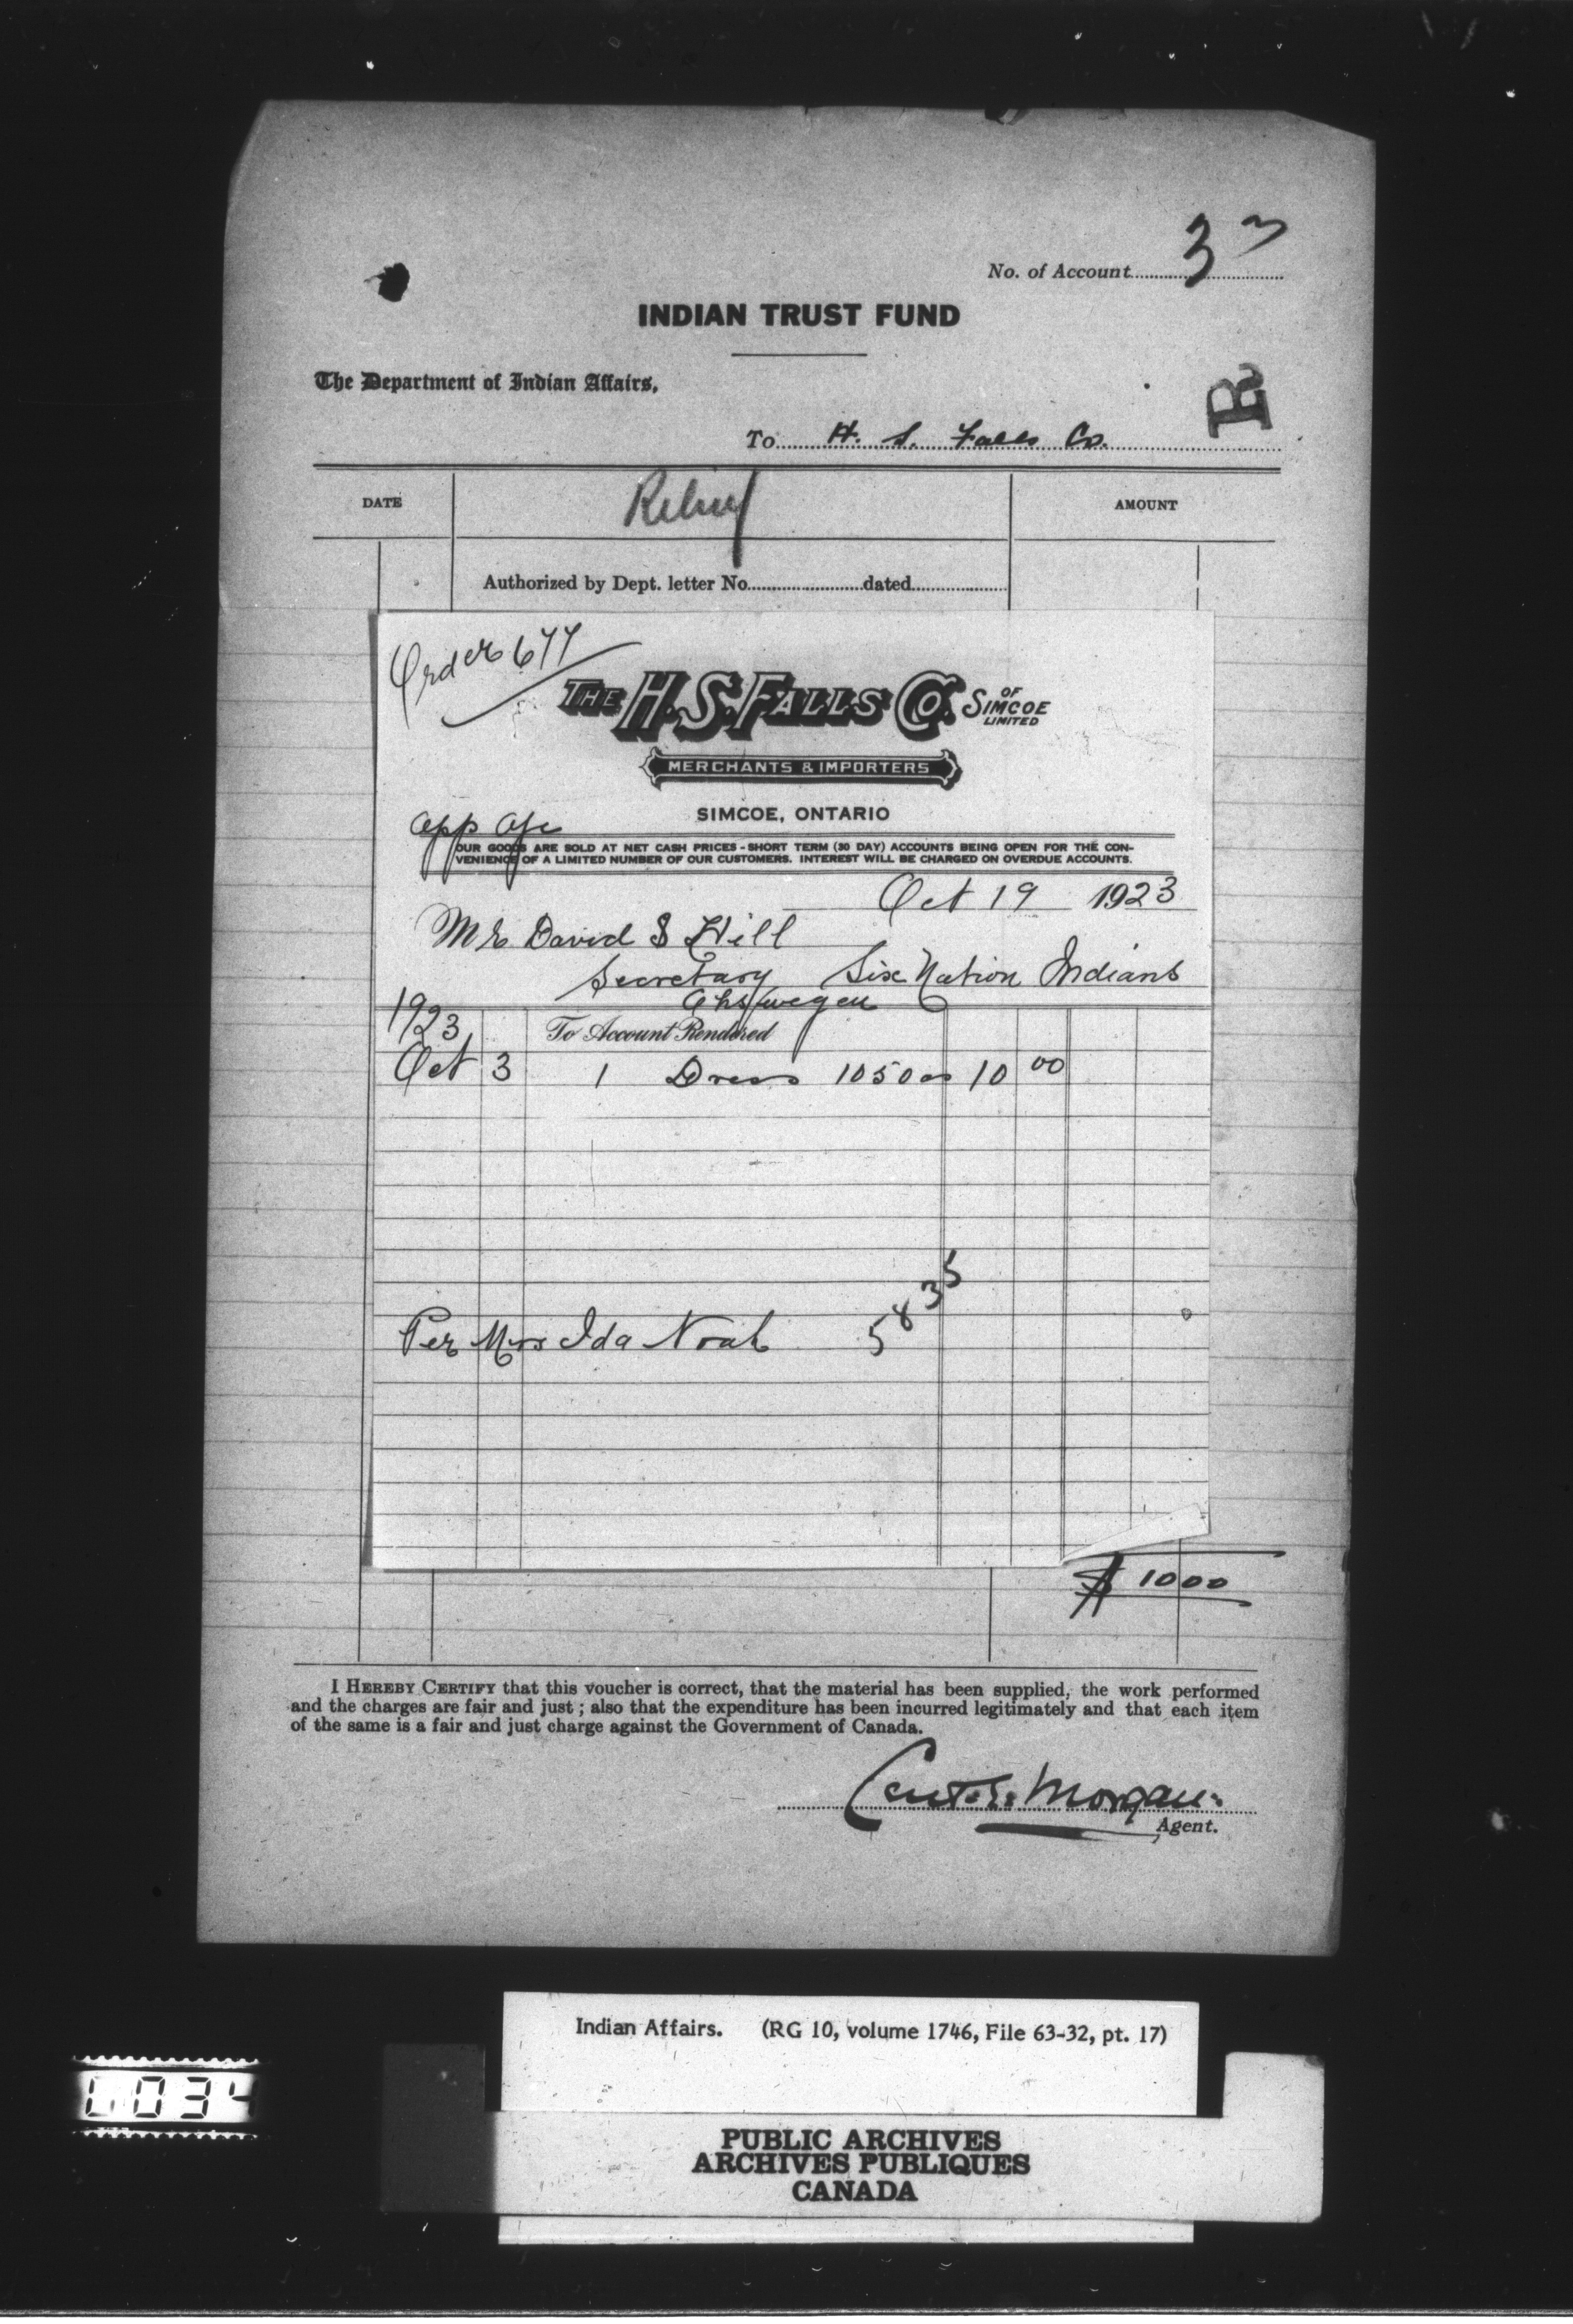 No. of Account 33
INDIAN TRUST FUND
The Department of Indian Affairs,
R
To H. S. Falls Co.
DATE
Relief
AMOUNT
Authorized by Dept. letter No. dated
Order 677
THE H. S. FALLS CO. OF SIMCOE LIMITED
MERCHANTS & IMPORTERS
SIMCOE, ONTARIO
App
OUR GOODS ARE SOLD AT NET CASH PRICES - SHORT TERM (30 DAY) ACCOUNTS BEING OPEN FOR THE CON-
VENIENCE OF A LIMITED NUMBER OF OUR CUSTOMERS. INTEREST WILL BE CHARGED ON OVERDUE ACCOUNTS.
Oct 19 1923
Mr David S Hill
Secretary Six Nation Indians
Ohswegen
1923
To Account Rendered
Oct 3 1 Dress 1050 10 00
5835
Per Mrs Ida Noah
$ 10 00
I HEREBY CERTIFY that this voucher is correct, that the material has been supplied, the work performed
and the charges are fair and just ; also that the expenditure has been incurred legitimately and that each item
of the same is a fair and just charge against the Government of Canada.
Cecil E. Morgan
Agent.
Indian Affairs. (RG 10, volume 1746, File 63-32, pt. 17)
L 034
PUBLIC ARCHIVES
ARCHIVES PUBLIQUES
CANADA